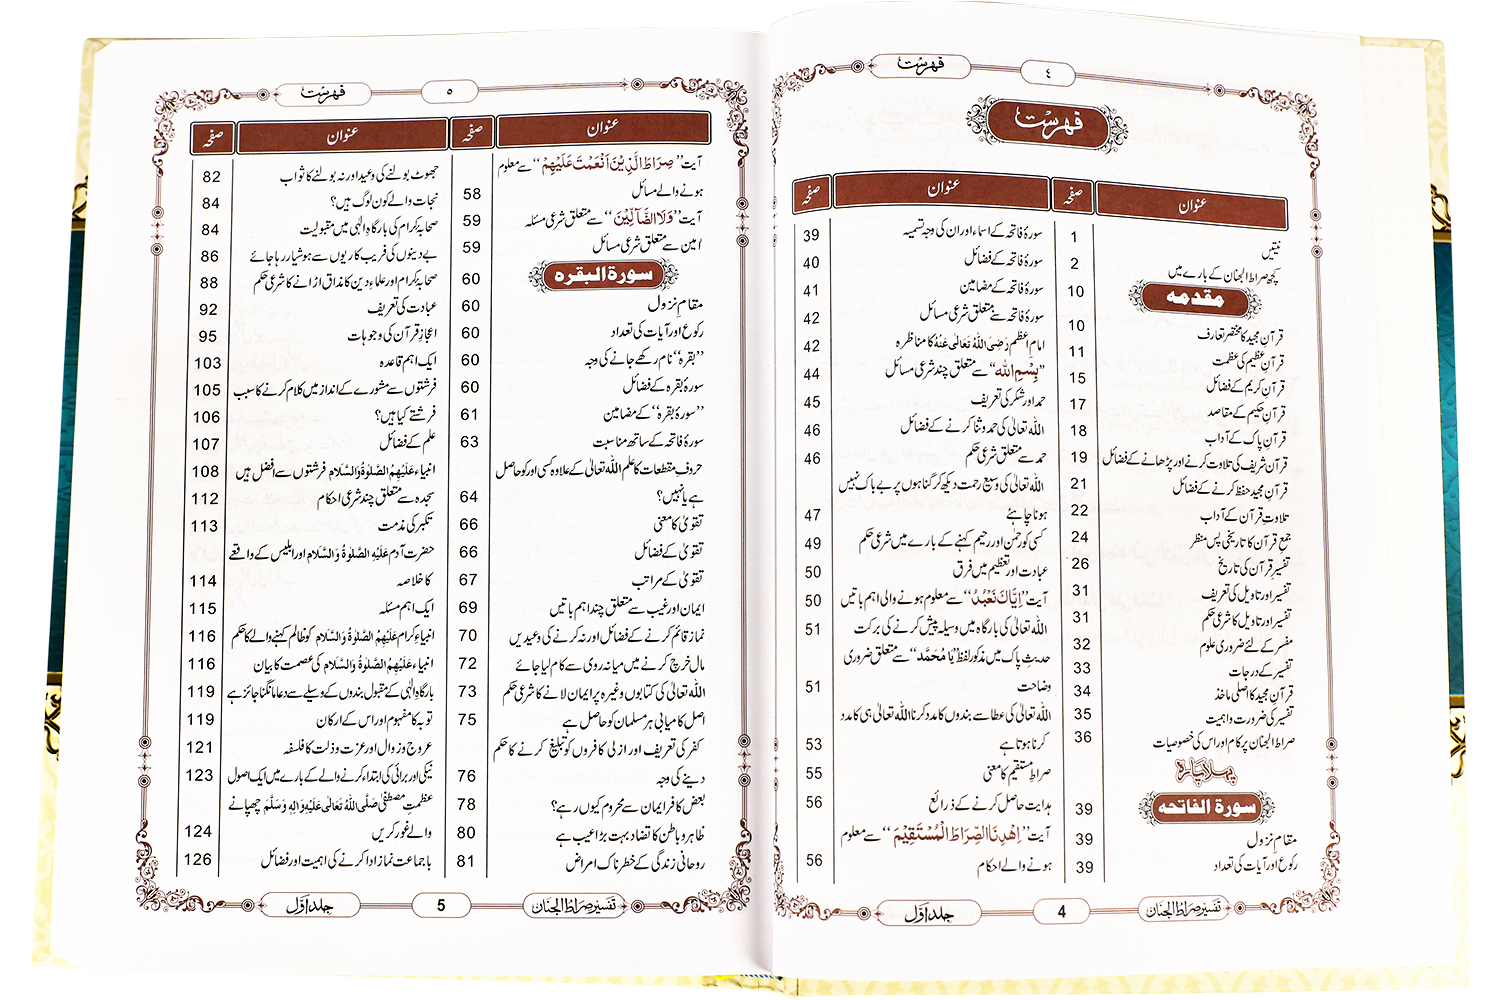 فہرست
٤
فہرست
عنوان
صفحہ
نیتیں
1
کچھ صراط الجنان کے بارے میں
2
مقدمہ
10
قرآنِ مجید کا مختصر تعارف
10
قرآنِ عظیم کی عظمت
11
قرآنِ کریم کے فضائل
15
قرآنِ حکیم کے مقاصد
17
قرآنِ پاک کے آداب
18
قرآن شریف کی تلاوت کرنے اور پڑھانے کے فضائل
19
قرآنِ مجید حفظ کرنے کے فضائل
21
تلاوتِ قرآن کے آداب
22
جمعِ قرآن کا تاریخی پس منظر
24
تفسیرِ قرآن کی تاریخ
26
تفسیر اور تاویل کی تعریف
31
تفسیر اور تاویل کا شرعی حکم
31
مفسر کے لئے ضروری علوم
32
تفسیر کے درجات
33
قرآنِ مجید کا اصلی ماخذ
34
تفسیر کی ضرورت و اہمیت
35
صراط الجنان پر کام اور اس کی خصوصیات
36
پہلا پارہ
سورۃ الفاتحہ
39
مقامِ نزول
39
رکوع اور آیات کی تعداد
39
عنوان
صفحہ
سورۂ فاتحہ کے اسماء اور ان کی وجہ تسمیہ
39
سورۂ فاتحہ کے فضائل
40
سورۂ فاتحہ کے مضامین
41
سورۂ فاتحہ سے متعلق شرعی مسائل
42
امامِ اعظم رَضِیَ اللّٰہُ تَعَالٰی عَنْہُ کا مناظرہ
42
”بِسْمِ اللّٰه“ سے متعلق چند شرعی مسائل
44
حمد اور شکر کی تعریف
45
اللّٰہ تعالیٰ کی حمد و ثنا کرنے کے فضائل
46
حمد سے متعلق شرعی حکم
46
اللّٰہ تعالیٰ کی وسیع رحمت دیکھ کر گناہوں پر بے باک نہیں
ہونا چاہئے
47
کسی کو رحمٰن اور رحیم کہنے کے بارے میں شرعی حکم
49
عبادت اور تعظیم میں فرق
50
آیت ”اِیَّاکَ نَعْبُدُ“ سے معلوم ہونے والی اہم باتیں
50
اللّٰہ تعالیٰ کی بارگاہ میں وسیلہ پیش کرنے کی برکت
51
حدیثِ پاک میں مذکور لفظ ”یَا مُحَمَّد“ سے متعلق ضروری
وضاحت
51
اللّٰہ تعالیٰ کی عطا سے بندوں کا مدد کرنا اللّٰہ تعالیٰ ہی کا مدد
کرنا ہوتا ہے
53
صراطِ مستقیم کا معنی
55
ہدایت حاصل کرنے کے ذرائع
56
آیت ”اِهْدِنَا الصِّرَاطَ الْمُسْتَقِیْمَ“ سے معلوم
ہونے والے احکام
56
تفسیر صراط الجنان
4
جلد اوّل
فہرست
٥
عنوان
صفحہ
آیت ”صِرَاطَ الَّذِیْنَ اَنْعَمْتَ عَلَیْهِمْ“ سے معلوم
ہونے والے مسائل
58
آیت ”وَلَا الضَّآلِّیْنَ“ سے متعلق شرعی مسئلہ
59
امین سے متعلق شرعی مسائل
59
سورۃ البقرہ
60
مقامِ نزول
60
رکوع اور آیات کی تعداد
60
”بقرہ“ نام رکھے جانے کی وجہ
60
سورۂ بقرہ کے فضائل
60
”سورۂ بقرہ“ کے مضامین
61
سورۂ فاتحہ کے ساتھ مناسبت
63
حروفِ مقطعات کا علم اللّٰہ تعالیٰ کے علاوہ کسی اور کو حاصل
ہے یا نہیں؟
64
تقویٰ کا معنی
66
تقویٰ کے فضائل
66
تقویٰ کے مراتب
67
ایمان اور غیب سے متعلق چند اہم باتیں
69
نماز قائم کرنے کے فضائل اور نہ کرنے کی وعیدیں
70
مال خرچ کرنے میں میانہ روی سے کام لیا جائے
72
اللّٰہ تعالیٰ کی کتابوں وغیرہ پر ایمان لانے کا شرعی حکم
73
اصل کامیابی ہر مسلمان کو حاصل ہے
75
کفر کی تعریف اور ازلی کافروں کو تبلیغ کرنے کا حکم
دینے کی وجہ
76
بعض کافر ایمان سے محروم کیوں رہے؟
78
ظاہر و باطن کا تضاد بہت بڑا عیب ہے
80
روحانی زندگی کے خطرناک امراض
81
عنوان
صفحہ
جھوٹ بولنے کی وعید اور نہ بولنے کا ثواب
82
نجات والے کون لوگ ہیں؟
84
صحابۂ کرام کی بارگاہِ الٰہی میں مقبولیت
84
بے دینوں کی فریب کاریوں سے ہوشیار رہا جائے
86
صحابۂ کرام اور علماءِ دین کا مذاق اڑانے کا شرعی حکم
88
عبادت کی تعریف
92
اعجازِ قرآن کی وجوہات
95
ایک اہم قاعدہ
103
فرشتوں سے مشورے کے انداز میں کلام کرنے کا سبب
105
فرشتے کیا ہیں؟
106
علم کے فضائل
107
انبیاء عَلَیْہِمُ الصَّلٰوۃُ وَالسَّلَام فرشتوں سے افضل ہیں
108
سجدہ سے متعلق چند شرعی احکام
112
تکبر کی مذمت
113
حضرت آدم عَلَیْہِ الصَّلٰوۃُ وَالسَّلَام اور ابلیس کے واقعے
کا خلاصہ
114
ایک اہم مسئلہ
115
انبیاءِ کرام عَلَیْہِمُ الصَّلٰوۃُ وَالسَّلَام کو ظالم کہنے والے کا حکم
116
انبیاء عَلَیْہِمُ الصَّلٰوۃُ وَالسَّلَام کی عصمت کا بیان
116
بارگاہِ الٰہی کے مقبول بندوں کے وسیلے سے دعا مانگنا جائز ہے
119
توبہ کا مفہوم اور اس کے ارکان
119
عروج و زوال اور عزت و ذلت کا فلسفہ
121
نیکی اور برائی کی ابتداء کرنے والے کے بارے میں ایک اصول
123
عظمتِ مصطفیٰ صَلَّی اللّٰہُ تَعَالٰی عَلَیْہِ وَاٰلِہٖ وَسَلَّمَ چھپانے
والے غور کریں
124
باجماعت نماز ادا کرنے کی اہمیت اور فضائل
126
تفسیر صراط الجنان
5
جلد اوّل